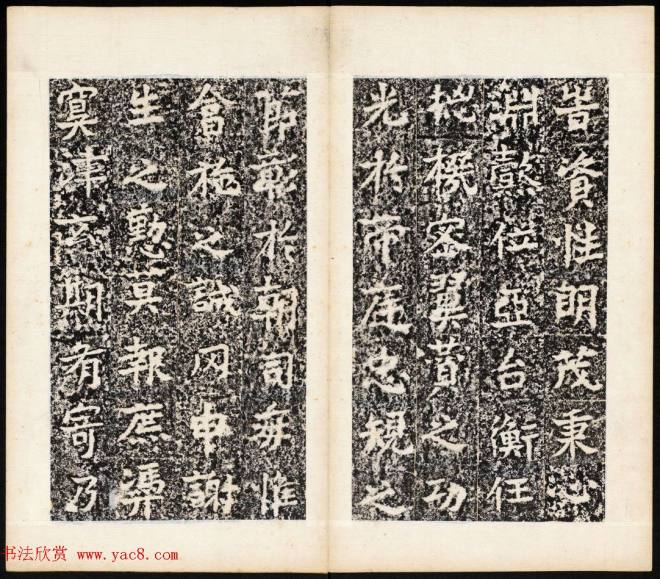 旹資性朗茂秉心
淵懿位亞台衡任
捴機密翼贊之功
光於帝庭忠規之
節彰於朝司每惟
會施之誠罔申謝
生之懃冥報庶憑
冥津玄期有寄乃
书法欣赏 www.yac8.com